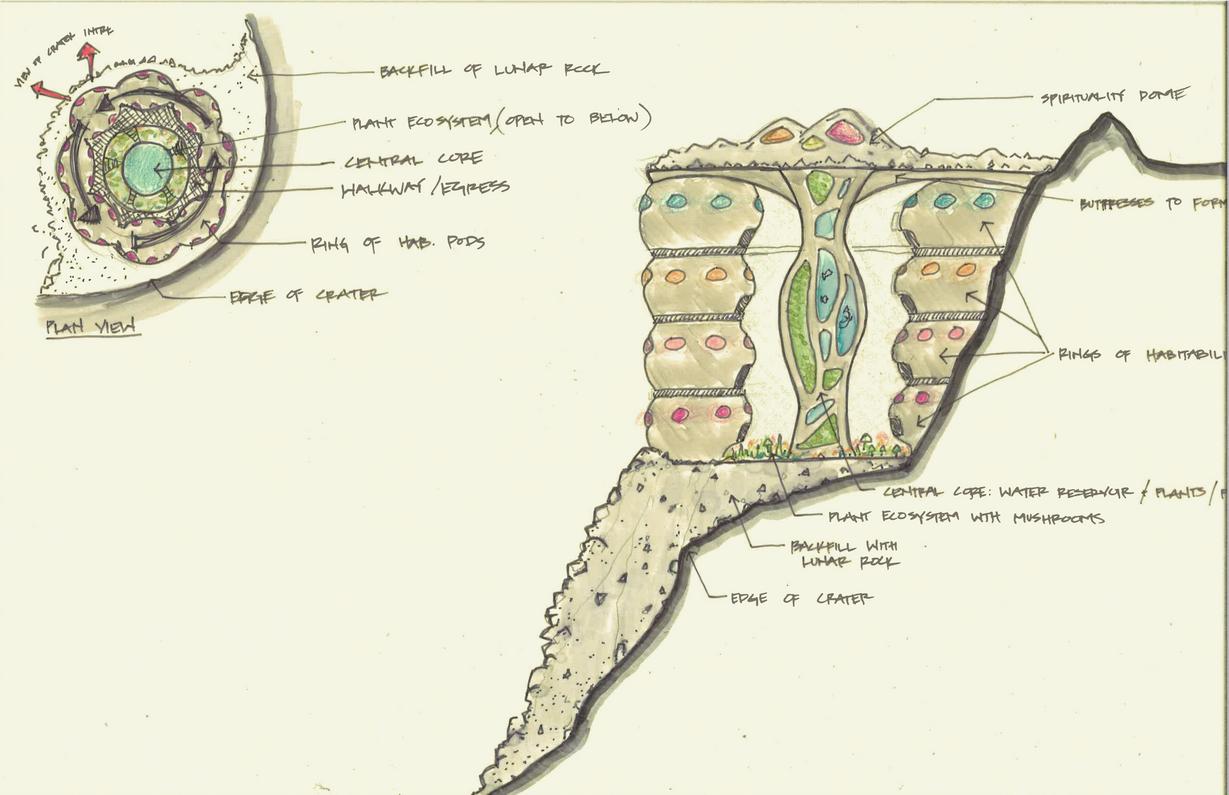 VIEW OF CRATER INTRE
BACKFILL OF LUNAR ROCK
PLANT ECOSYSTEM (OPEN TO BELOW)
CENTRAL CORE
WALKWAY/EGRESS
RING OF HAB. PODS
EDGE OF CRATER
PLAN VIEW
SPIRITUALITY DOME
BUTTRESSES TO FORM
RINGS OF HABITABILI
CENTRAL CORE: WATER RESERVOIR & PLANTS/F
PLANT ECOSYSTEM WITH MUSHROOMS
BACKFILL WITH
LUNAR ROCK
EDGE OF CRATER